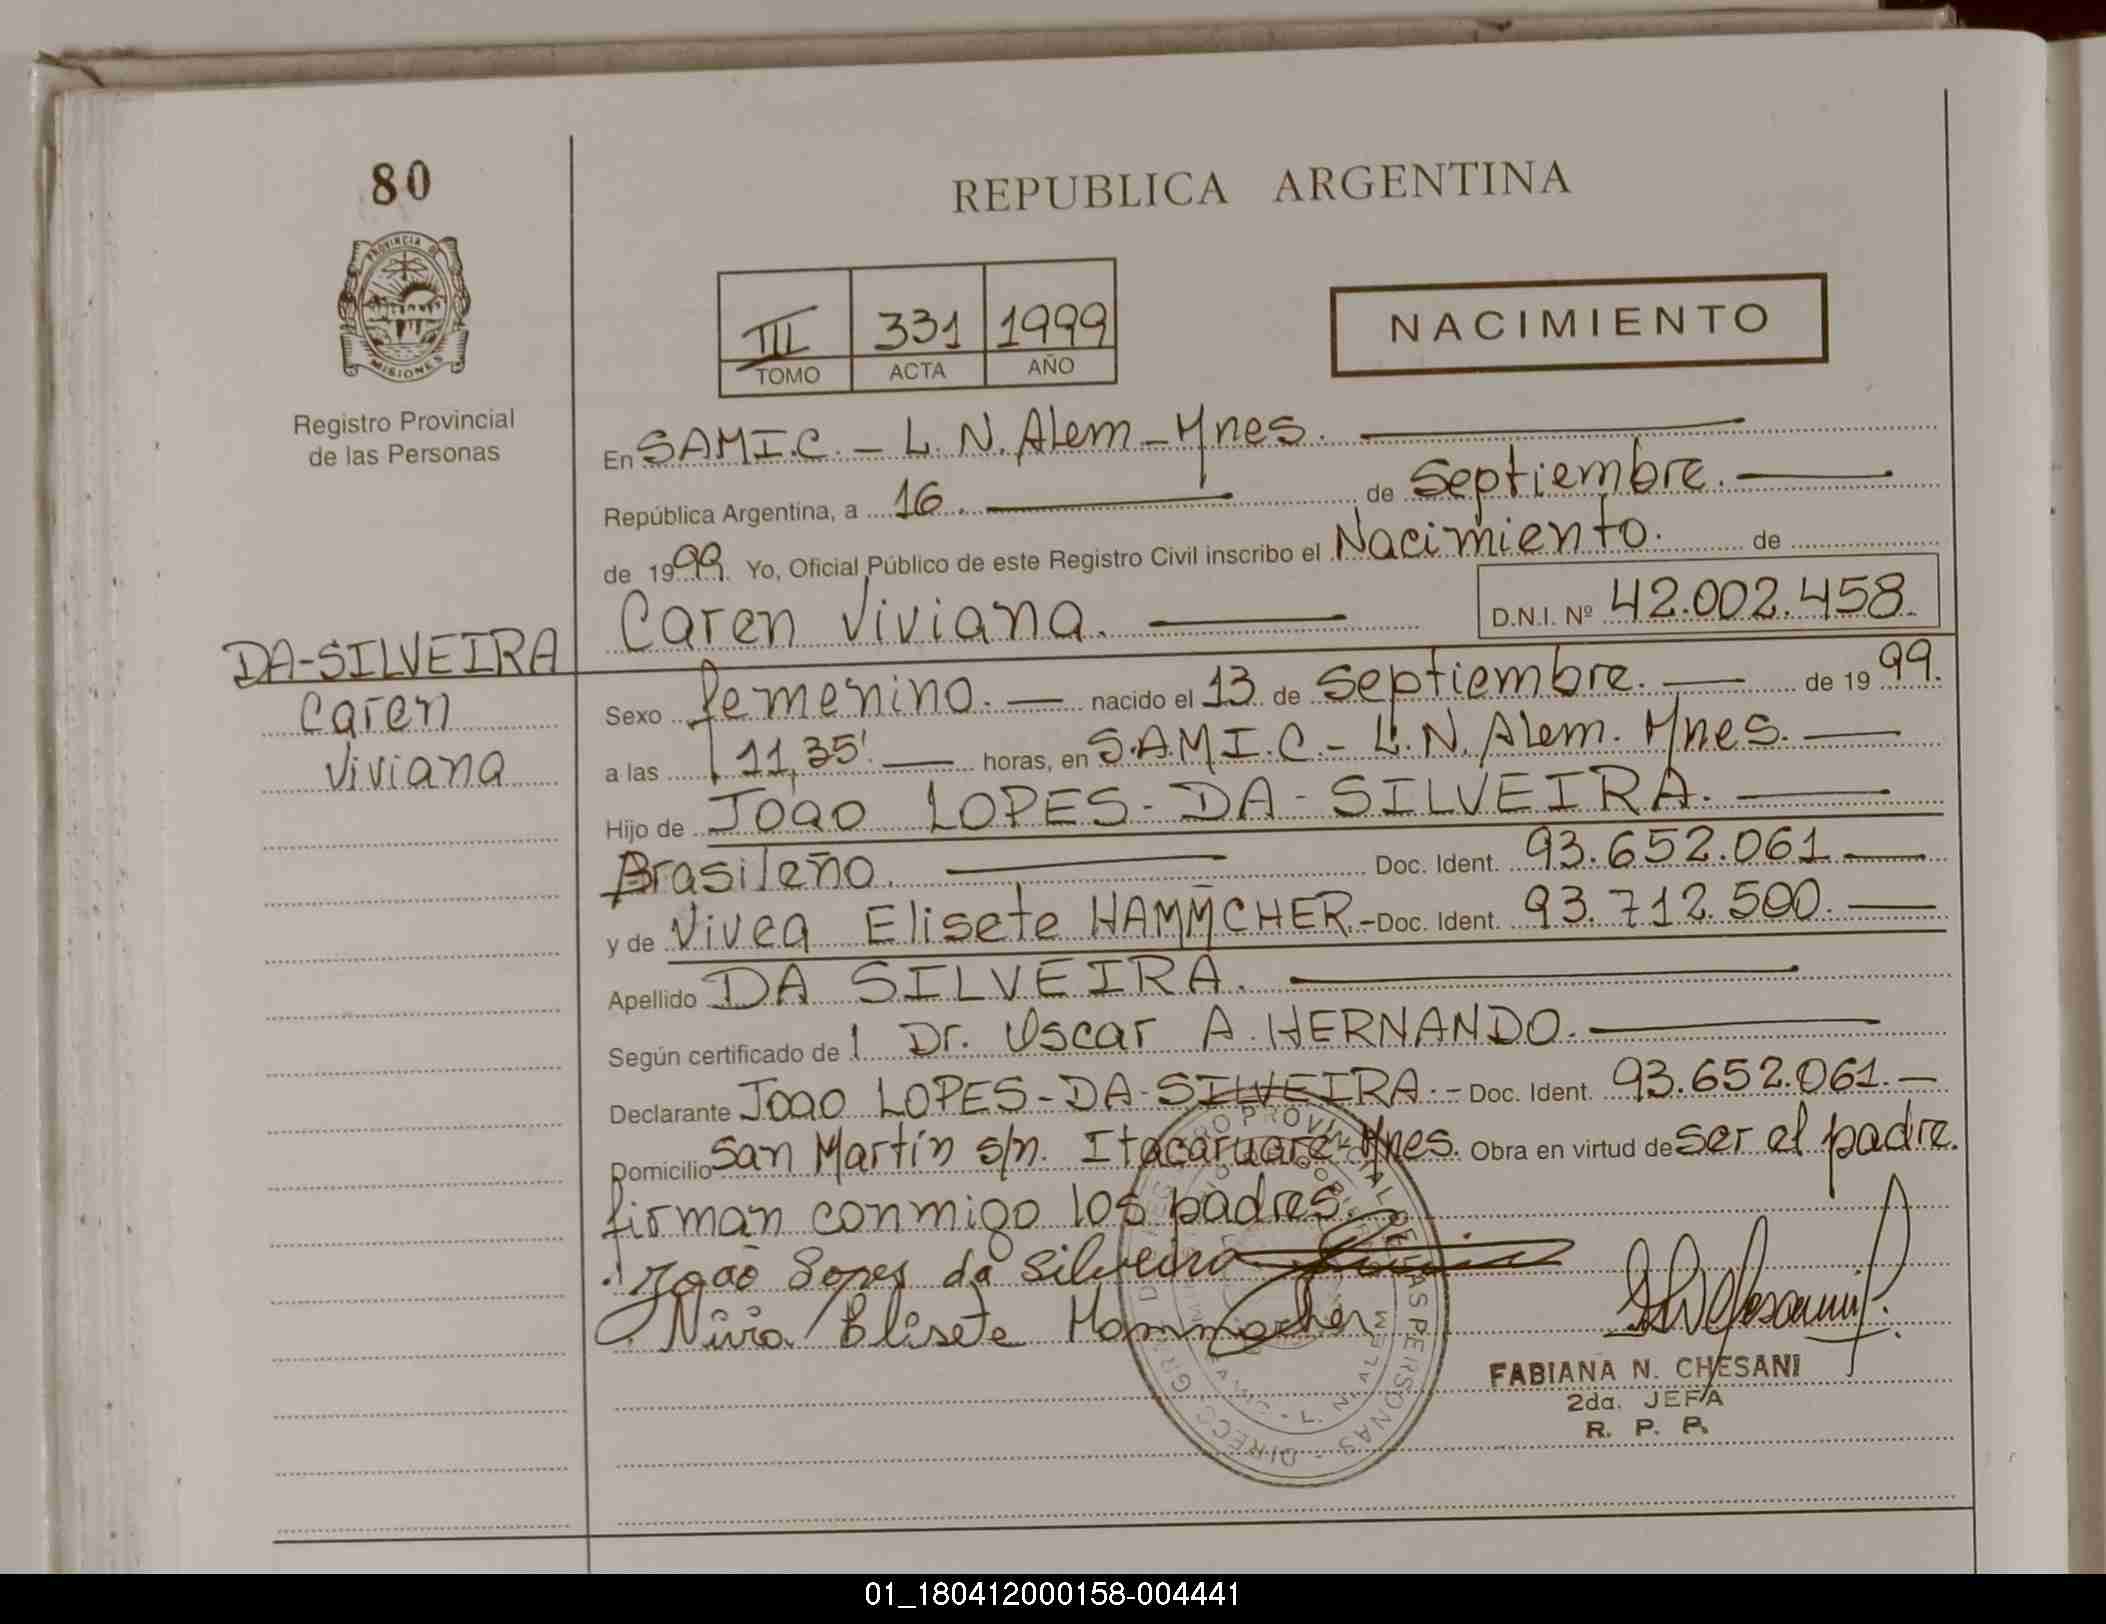 80
REPUBLICA ARGENTINA
PROVINCIA DE
MISIONES
III 331 1999
TOMO ACTA AÑO
NACIMIENTO
Registro Provincial
de las Personas
En SAMI.C. - L. N. Alem - Mnes.
República Argentina, a 16. de Septiembre.
de 1999. Yo, Oficial Público de este Registro Civil inscribo el Nacimiento. de
Caren Viviana. D.N.I. Nº 42.002.458
DA-SILVEIRA
Caren
Viviana
Sexo femenino. nacido el 13 de Septiembre. de 1999.
a las 11,35' horas, en S.A.M.I.C. - L. N. Alem. Mnes.
Hijo de Joao LOPES-DA-SILVEIRA.
Brasileño. Doc. Ident. 93.652.061
y de Nivea Elisete HAMMCHER.- Doc. Ident. 93.712.500.
Apellido DA SILVEIRA.
Según certificado de l Dr. Oscar A. HERNANDO.
Declarante Joao LOPES-DA-SILVEIRA.- Doc. Ident. 93.652.061.-
Domicilio San Martín s/n. Itacaruare-Mnes. Obra en virtud de ser el padre.
firman conmigo los padres.
João Lopes da Silveira
Nivia Elisete Hammacher
FABIANA N. CHESANI
2da. JEFA
R. P. P.
01_180412000158-004441